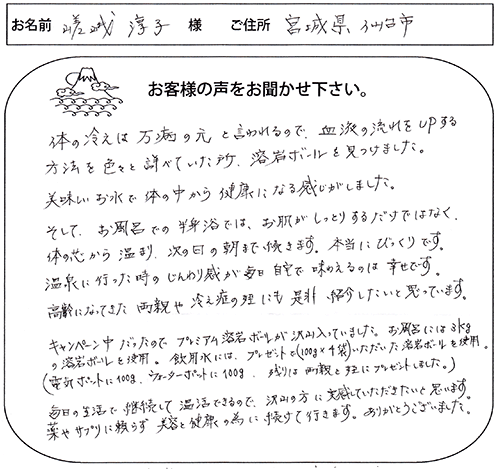 お名前 嵯城 淳子 様 ご住所 宮城県 仙台市
お客様の声をお聞かせ下さい。
体の冷えは 万病の元 と言われるので、血液の流れをUPする
方法を色々と調べていた所、溶岩ボールを見つけました。
美味しいお水で体の中から健康になる感じがしました。
そして、お風呂での半身浴では、お肌がしっとりするだけではなく、
体の芯から温まり、次の日の朝まで続きます。本当にびっくりです。
温泉に行った時のじんわり感が毎日自宅で味わえるのは幸せです。
高齢になってきた両親や冷え症の姪にも是非紹介したいと思っています。
キャンペーン中だったのでプレミアム溶岩ボールが沢山入っていました。お風呂には3kg
の溶岩ボールを使用。飲用水には、プレゼントで(100g×4袋)いただいた溶岩ボールを使用。
(電気ポットに100g、ウォーターポットに100g、残りは両親と姪にプレゼントしました。)
毎日の生活で継続して温活できるので、沢山の方に実感していただきたいと思います。
薬やサプリに頼らず美容と健康の為に続けて行きます。ありがとうございました。